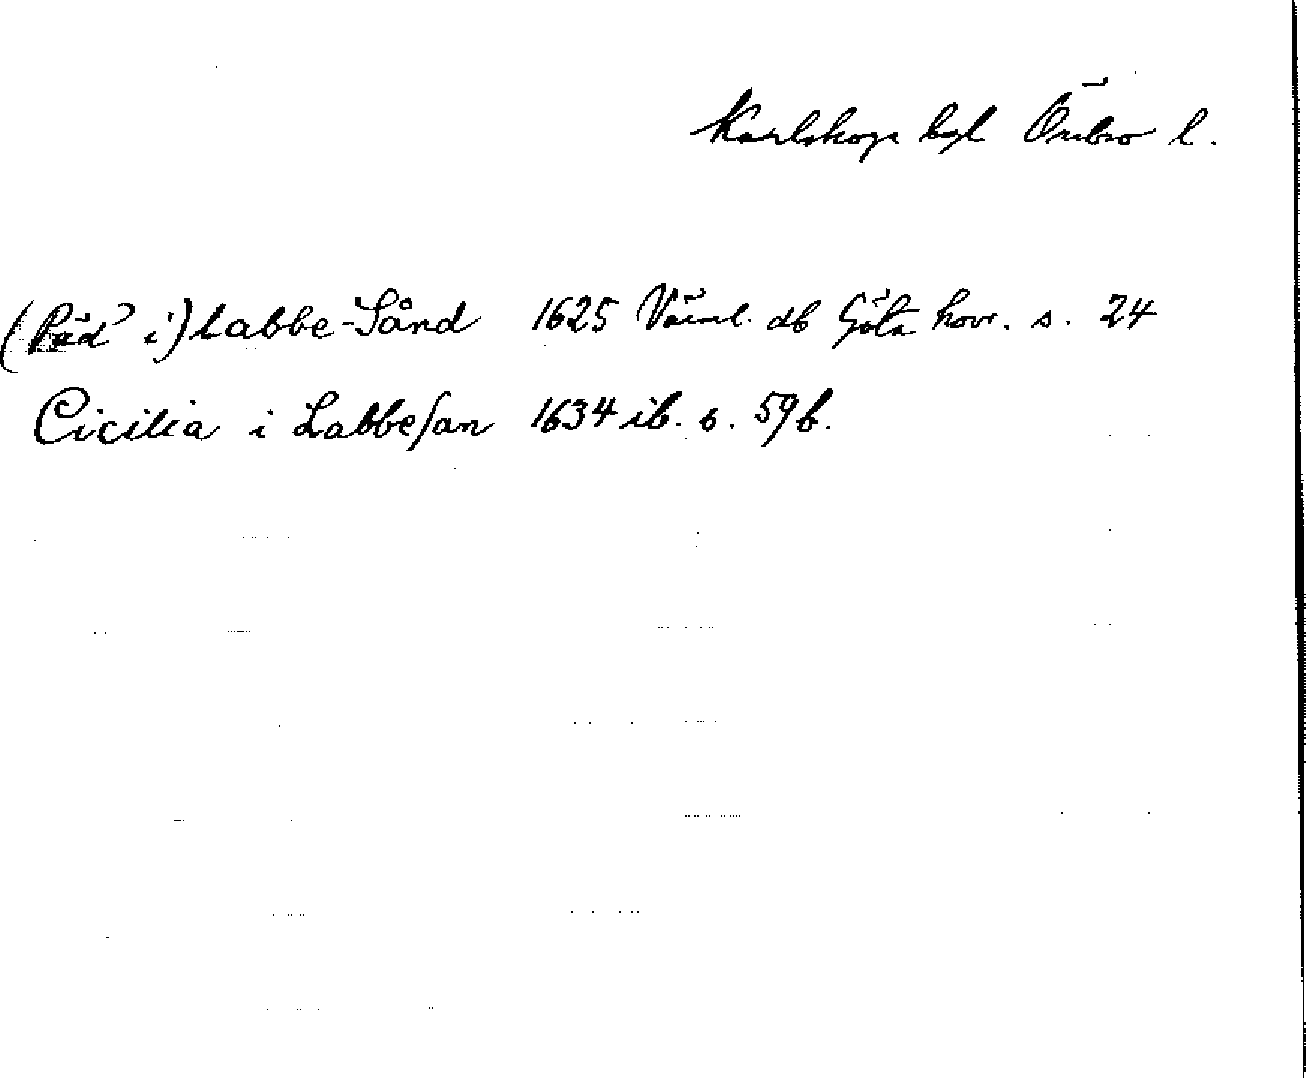 Karlskoga bgl Örebro l.
( i) Labbe-Sånd 1625 Värml. db Göta hovr. s. 24
Cicilia i Labbesan 1634 ib. s. 59 b.